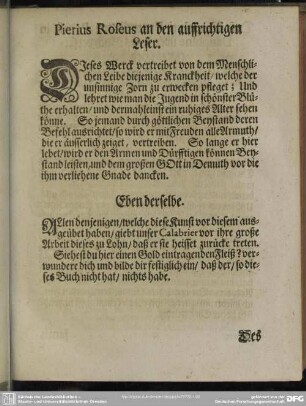 Pierius Roseus an den auffrichtigen
Leser.
DIeses Werck vertreibet von dem Menschli-
chen Leibe diejenige Kranckheit / welche der
unsinnige Zorn zu erwecken pfleget; Und
lehret wie man die Jugend in schönster Blü-
the erhalten / und dermahleinst ein ruhiges Alter sehen
könne. So jemand durch göttlichen Beystand deren
Befehl ausrichtet / so wird er mit Freuden alle Armuth /
die er äusserlich zeiget / vertreiben. So lange er hier
lebet / wird er den Armen und Dürfftigen können Bey-
stand leisten / und dem großen GOtt in Demuth vor die
ihm verliehene Gnade dancken.
Eben derselbe.
ALlen denjenigen / welche diese Kunst vor diesem aus-
geübet haben / giebt unser Calabrier vor ihre große
Arbeit dieses zu Lohn / daß er sie heisset zurücke treten.
Siehest du hier einen Gold eintragenden Fleiß? ver-
wundere dich und bilde dir festiglich ein / daß der / so die-
ses Buch nicht hat / nichts habe.
Des
SLUB
Wir führen Wissen.
DFG